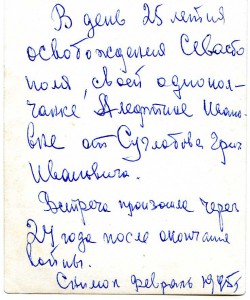 В день 25 летия
освобождения Севасто
поля, своей однопол-
чанке Алефтине Ивано-
вне от Суглобова
Ивановича.
Встреча произошла через
24 года после окончания
войны.
февраль